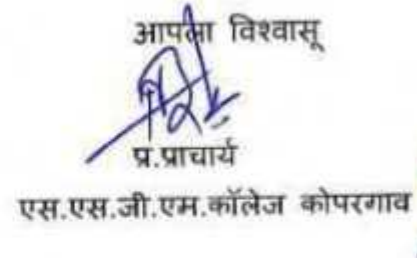 आपला विश्वासू
प्र.प्राचार्य
एस.एस.जी.एम.कॉलेज कोपरगाव